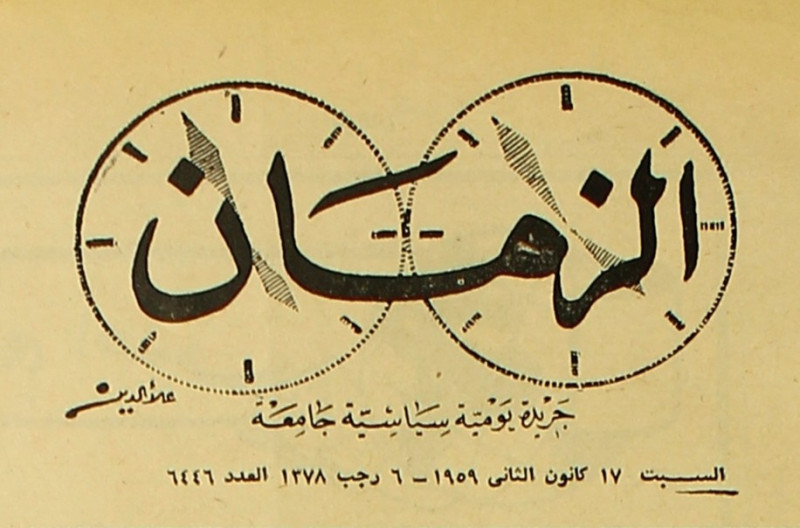 الزمان
علاء الدين
جريدة يومية سياسية جامعة
السبت ١٧ كانون الثاني ١٩٥٩ - ٦ رجب ١٣٧٨ العدد ٦٤٤٦